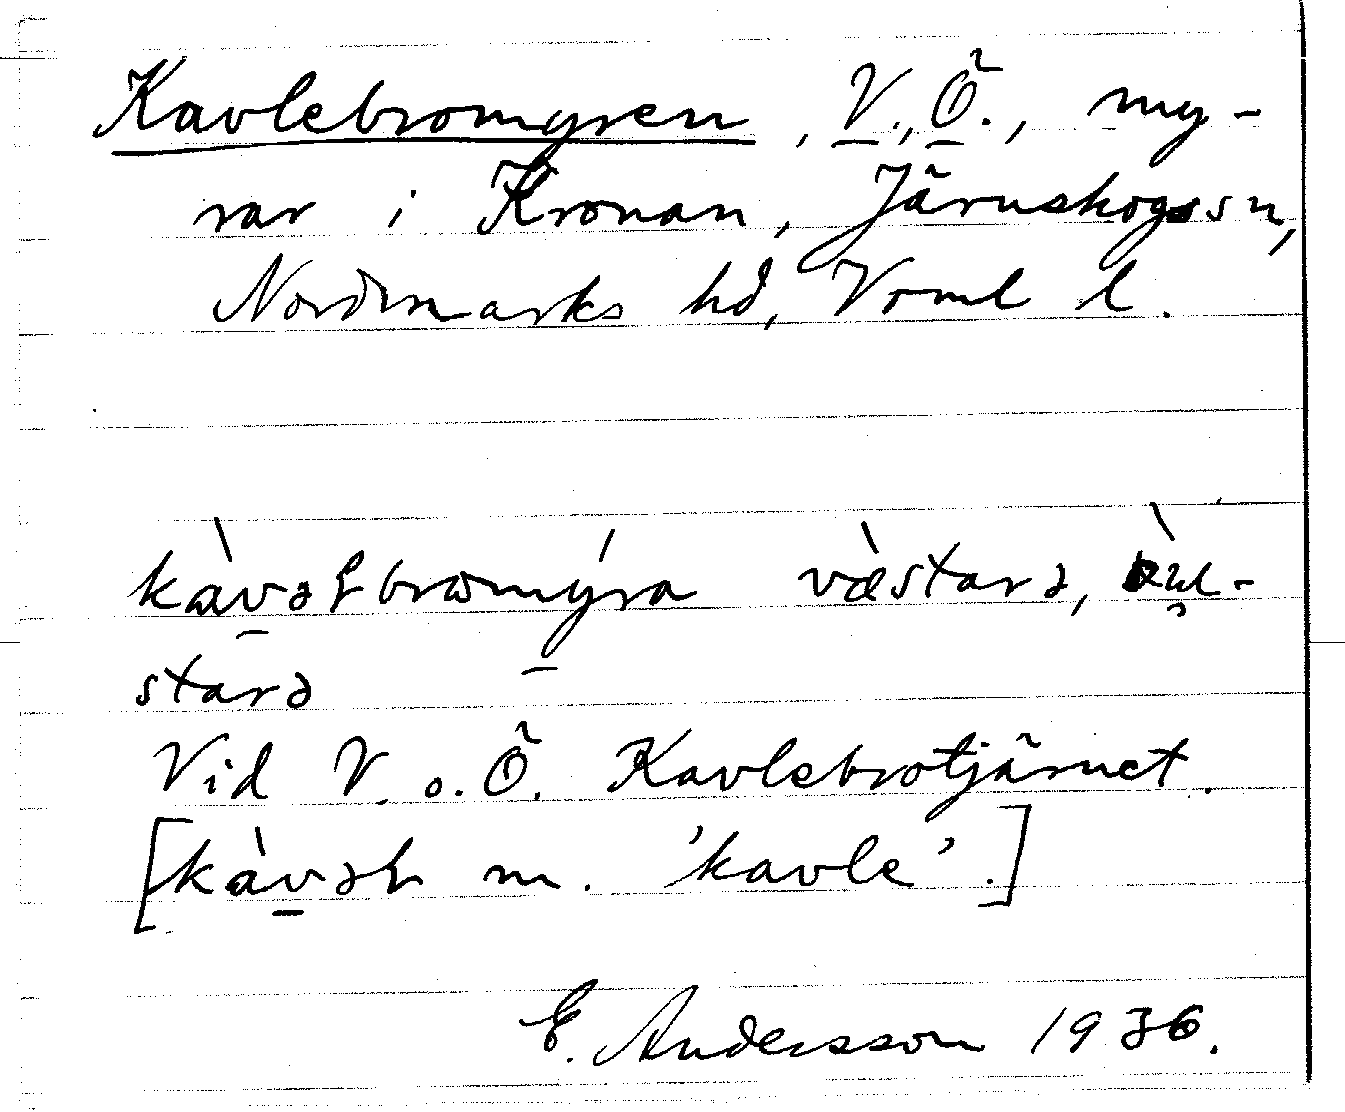 Kavlebromyren, V., Ö., my-
rar i Kronan, Järnskogs sn,
Nordmarks hd, Vrml l.
kàvəɫbromýra væ̀starə,
starə
Vid V. o. Ö. Kavlebrotjärnet.
[kàvəɫ m. 'kavle'.]
E. Andersson 1936.